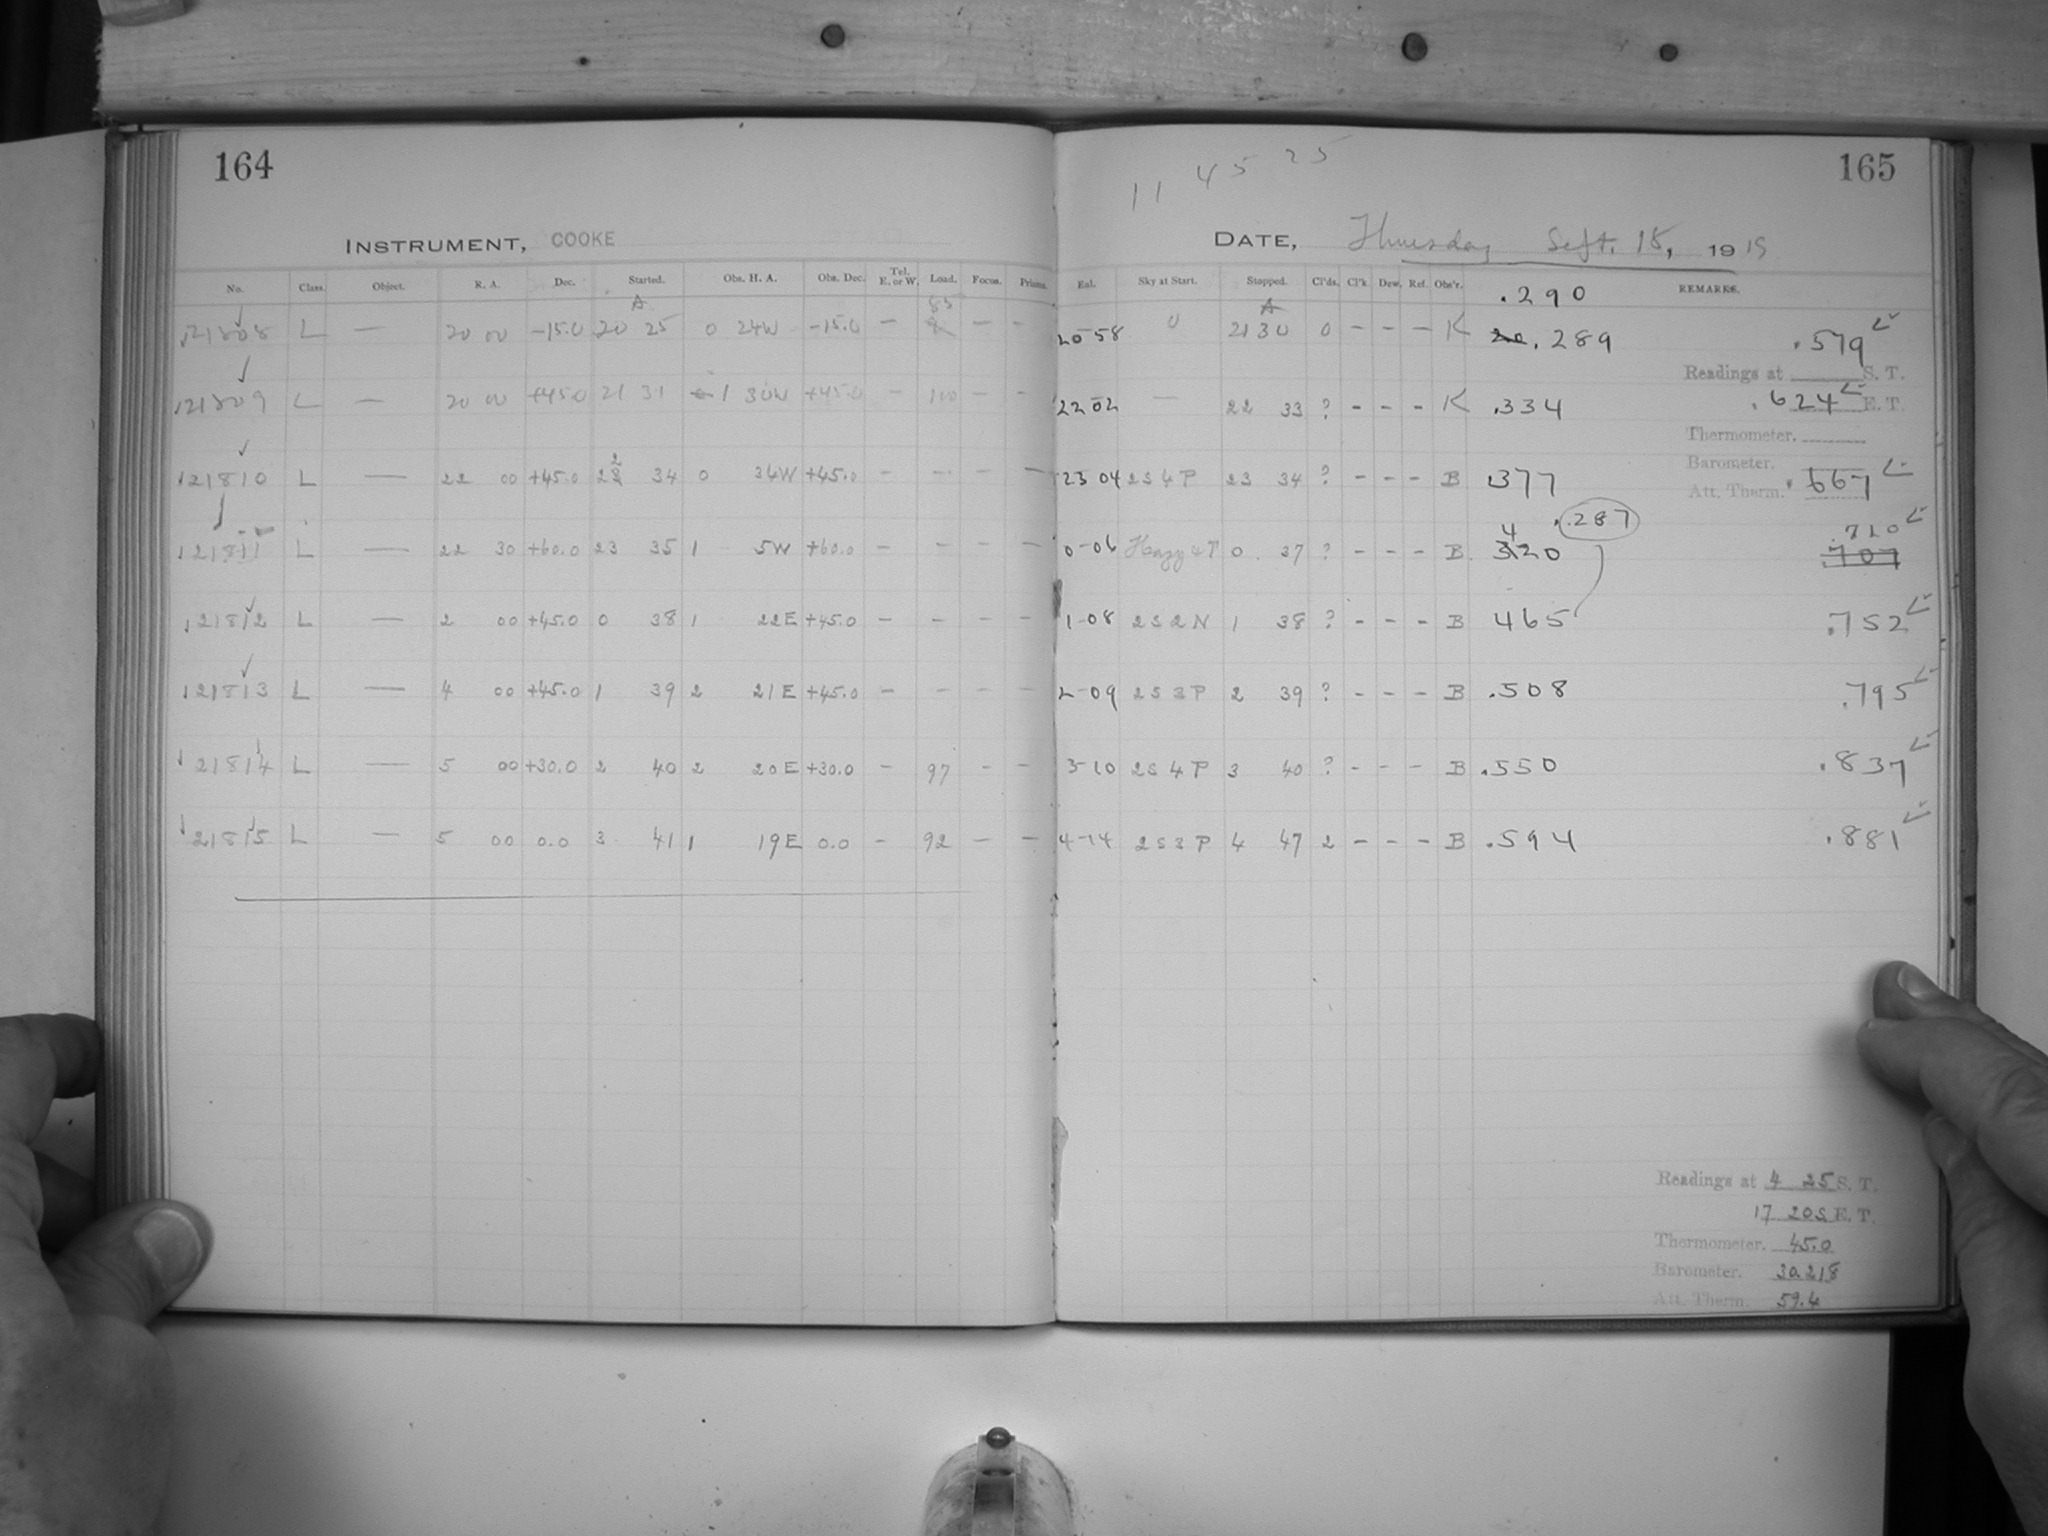 164
INSTRUMENT, COOKE
No. Class. Object. R. A. Dec. Started. Obs. H. A. Obs. Dec. Tel. E. or W. Load. Focus. Prisms.
A 85
21808 L — 20 00 -15.0 20 25 0 24W -15.0 — — —
21809 L — 20 00 +45.0 21 31 1 30W +45.0 — 100 — —
21810 L — 22 00 +45.0 22 34 0 34W +45.0 — — — —
21811 L — 22 30 +60.0 23 35 1 5W +60.0 — — — —
21812 L — 2 00 +45.0 0 38 1 22E +45.0 — — — —
21813 L — 4 00 +45.0 1 39 2 21E +45.0 — — — —
21814 L — 5 00 +30.0 2 40 2 20E +30.0 — 97 — —
21815 L — 5 00 0.0 3 41 1 19E 0.0 — 92 — —
165
11 45 25
DATE, Thursday Sept. 18, 1919
Eal. Sky at Start. Stopped. Cl'ds. Cl'k. Dew. Ref. Obs'r. REMARKS.
A .290
20-58 0 21 30 0 - - - K .289 .579
Readings at S. T.
22 02 — 22 33 ? - - - K .334 .624 E. T.
Thermometer.
Barometer.
23 04 2S4P 23 34 ? - - - B .377 .667
Att. Therm.
4 .287 .710
0-06 Hazy 4P 0 37 ? - - - B 320 .707
1-08 2S2N 1 38 ? - - - B 465 .752
2-09 2S3P 2 39 ? - - - B .508 .795
3-10 2S4P 3 40 ? - - - B .550 .837
4-14 2S3P 4 47 2 - - - B .594 .881
Readings at 4 25 S. T.
17 20 S. E. T.
Thermometer. 45.0
Barometer. 30.218
Att. Therm. 59.4